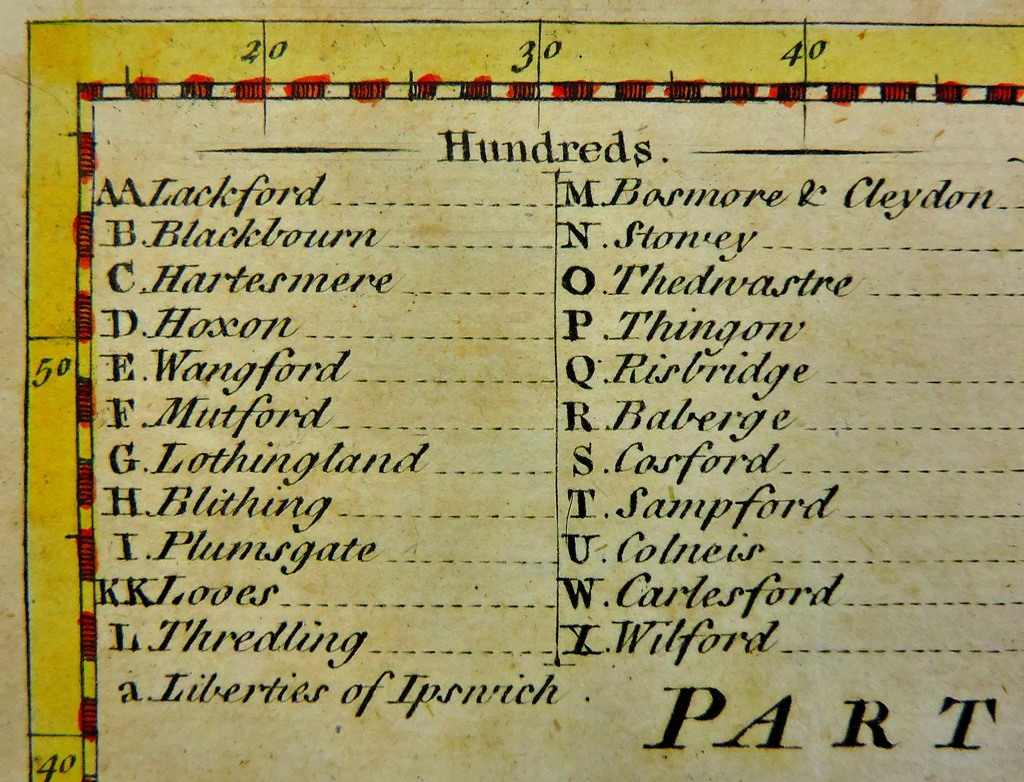 20 30 40
Hundreds.
AA Lackford
B. Blackbourn
C. Hartesmere
D. Hoxon
50
E. Wangford
F. Mutford
G. Lothingland
H. Blithing
I. Plumsgate
KK Looes
L. Thredling
a. Liberties of Ipswich.
M. Bosmore & Cleydon
N. Stowey
O. Thedwastre
P. Thingow
Q. Risbridge
R. Baberge
S. Cosford
T. Sampford
U. Colneis
W. Carlesford
X. Wilford
PART
40